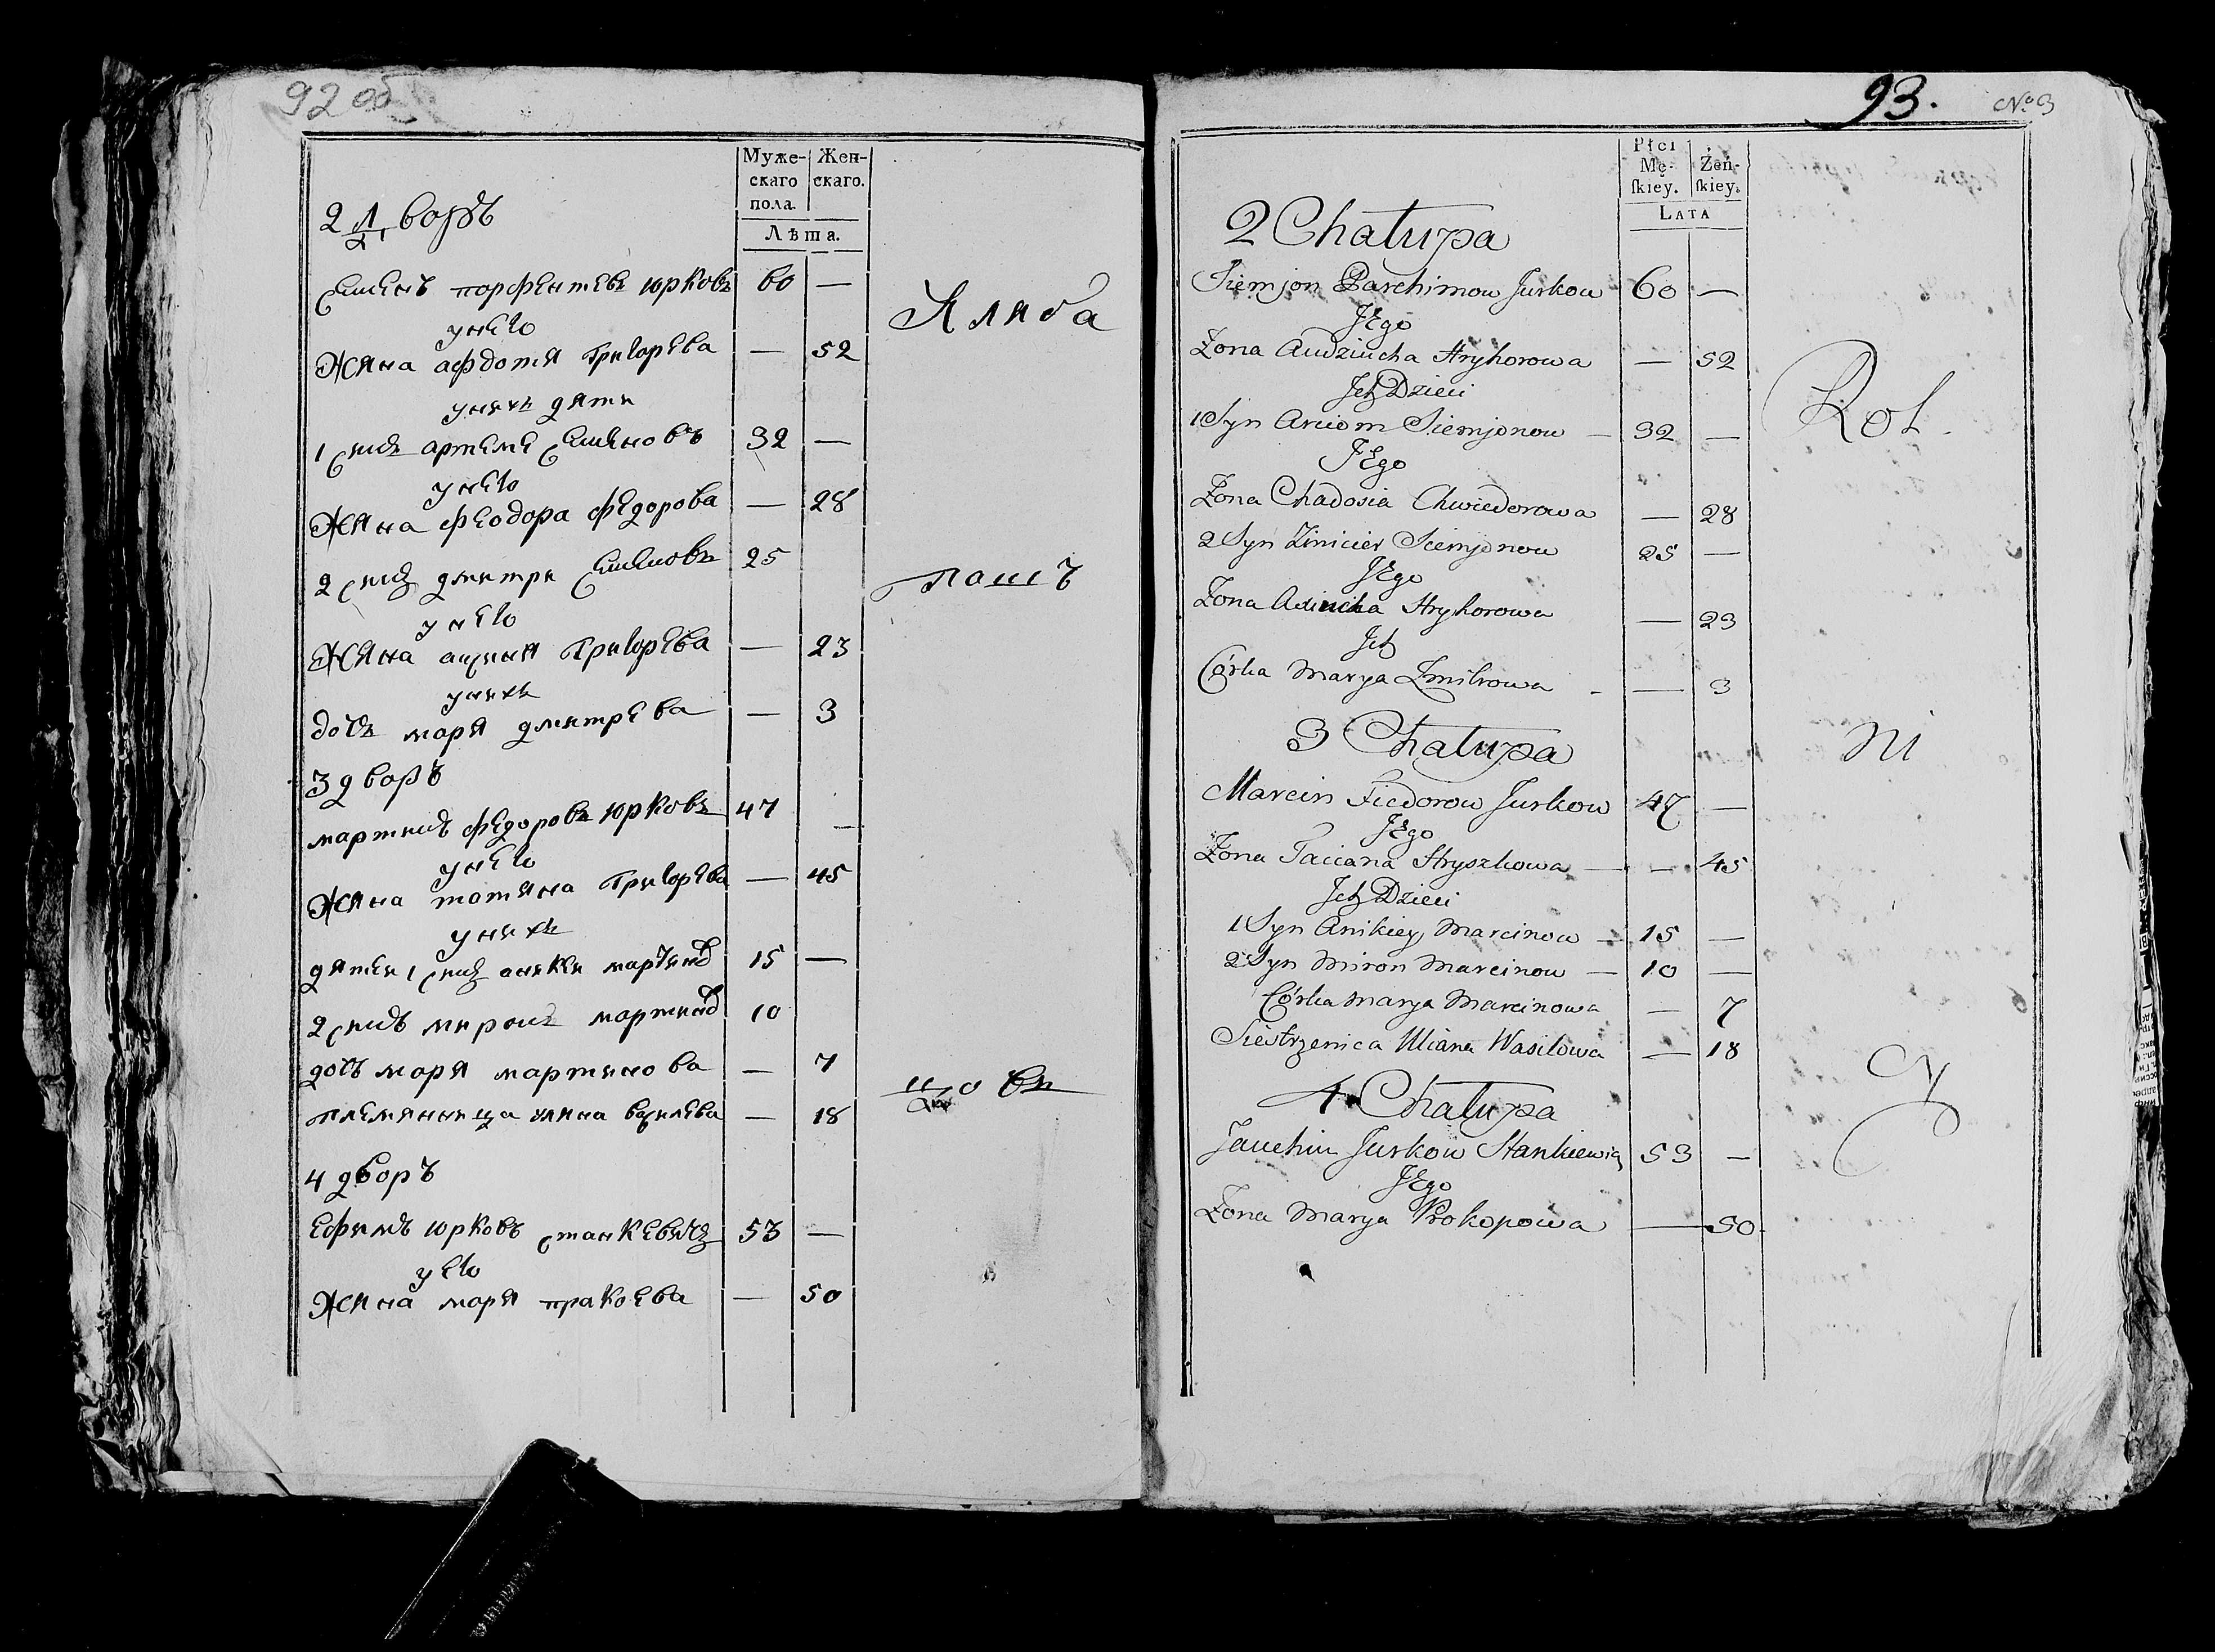 92 об
Муже- Жен-
скаго скаго.
пола.
Лѣта.
2 дворъ
семенъ парфентевъ юрковъ 60 —
унего
жена афдотя григорева — 52
унихъ дети
1 сынъ артеме семеновъ 32 —
унего
жена феодора федорова — 28
2 сынъ дмитри семеновъ 25
унего
жена аксиня григорева — 23
унихъ
дочь маря дмитрева — 3
3 дворъ
мартинъ федоровъ юрковъ 47 —
унего
жена татяна григорева — 45
унихъ
дятеи 1 сынъ аникеи мартиновъ 15 —
2 сынъ миронъ мартиновъ 10
дочь маря мартинова — 7
племяница уляна василева — 18
4 дворъ
ефимъ юрковъ станкевичъ 53 —
у его
жена маря пракоева — 50
Хляба
паш
цовъ
93.
№ 3
Płci
Mę- Żeń-
skiey. skiey.
LATA
2 Chałupa
Siemjon Parchimow Jurkow 60 —
Jego
Żona Audziucha Hryhorowa — 52
Ich Dzieci
1 Syn Arciom Siemjonow — 32 —
Jego
Żona Chadosia Chwiedorowa — 28
2 Syn Zmicier Siemjonow 25 —
Jego
Żona Axiucha Hryhorowa — 23
Ich
Córka Marya Zmitrowa - — 3
3 Chałupa
Marcin Fiedorow Jurkow 47 —
Jego
Żona Taciana Hryszkowa — - 45
Ich Dzieci
1 Syn Anikiey Marcinow — 15 —
2 Syn Miron Marcinow — 10 —
Córka Marya Marcinowa — 7
Siestrzenica Uliana Wasilowa — 18
4 Chałupa
Jauchim Jurkow Stankiewicz 53 —
Jego
Żona Marya Prokopowa — 50
Rol
ni
cy